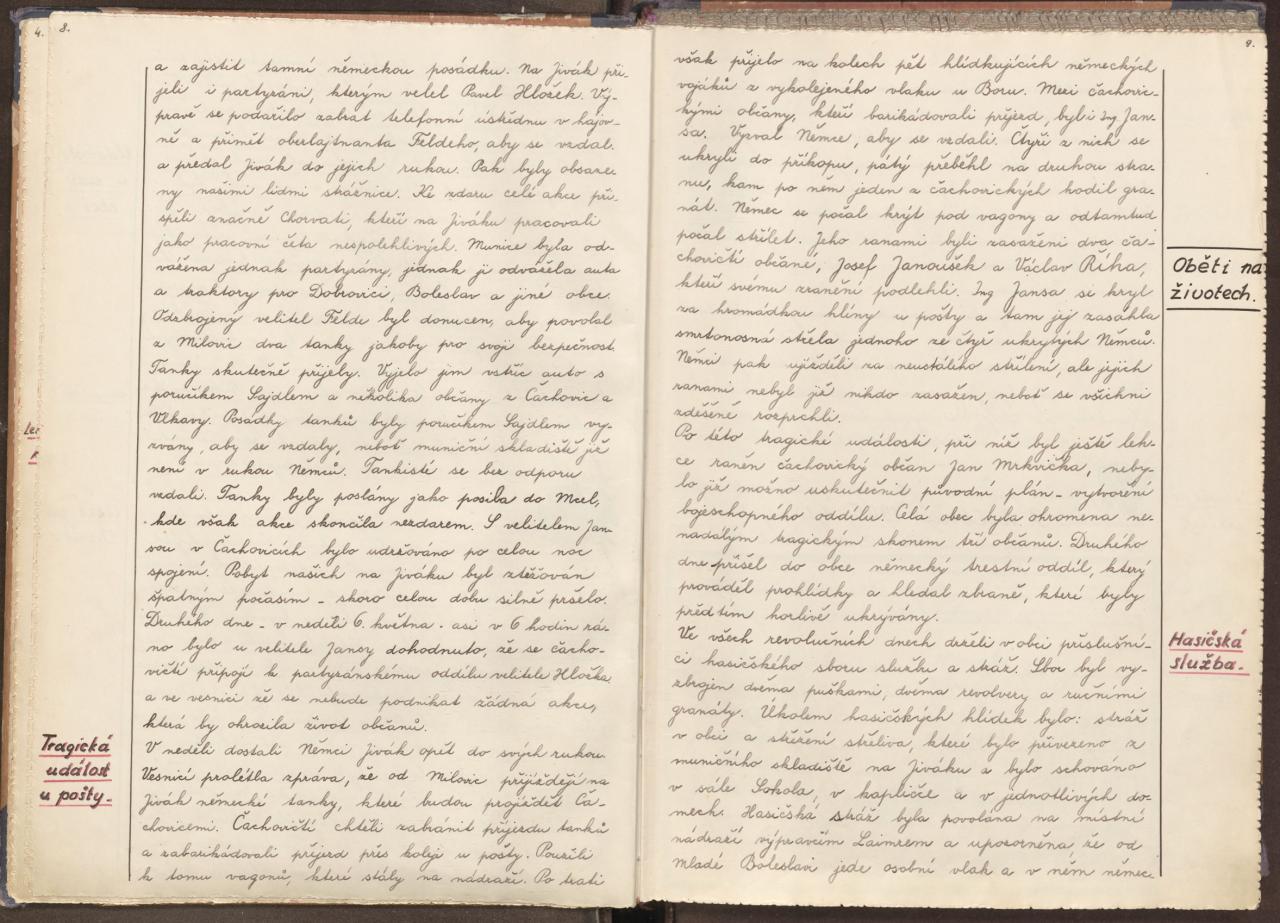 4. 8.
a zajistit tamní německou posádku. Na Jivák při-
jeli i partyzáni, kterým velel Pavel Hložek. Vý-
pravě se podařilo zabrat telefonní ústřednu v hájov-
ně a přimět oberlajtnanta Feldeho, aby se vzdal.
a předal Jivák do jejich rukou. Pak byly obsaze-
ny našimi lidmi strážnice. Ke zdaru celé akce při-
spěli značně Chorvati, kteří na Jiváku pracovali
jako pracovní četa nespolehlivých. Munice byla od-
vážena jednak partyzány, jednak ji odvážela auta
a traktory pro Dobrovici, Boleslav a jiné obce.
Odzbrojený velitel Felde byl donucen, aby povolal
z Milovic dva tanky jakoby pro svoji bezpečnost.
Tanky skutečně přijely. Vyjelo jim vstříc auto s
poručíkem Sajdlem a několika občany z Čachovic a
Vlkavy. Posádky tanků byly poručíkem Sajdlem vy-
zvány, aby se vzdaly, neboť muniční skladiště již
není v rukou Němců. Tankisté se bez odporu
vzdali. Tanky byly poslány jako posila do Mcel,
kde však akce skončila nezdarem. S velitelem Jan-
sou v Čachovicích bylo udržováno po celou noc
spojení. Pobyt našich na Jiváku byl ztěžován
špatným počasím - skoro celou dobu silně pršelo.
Druhého dne - v neděli 6. května - asi v 6 hodin rá-
no bylo u velitele Jansy dohodnuto, že se čacho-
vičtí připojí k partyzánskému oddílu velitele Hložka
a ve vesnici že se nebude podnikat žádná akce,
která by ohrozila život občanů.
Tragická
událost
u pošty.
V neděli dostali Němci Jivák opět do svých rukou.
Vesnicí prolétla zpráva, že od Milovic přijíždějí na
Jivák německé tanky, které budou projíždět Ča-
chovicemi. Čachovičtí chtěli zabránit příjezdu tanků
a zabarikádovali příjezd přes koleje u pošty. Použili
k tomu vagonů, které stály na nádraží. Po trati
9.
však přijelo na kolech pět hlídkujících německých
vojáků z vykolejeného vlaku u Boru. Mezi čachovic-
kými občany, kteří barikádovali příjezd, byl i Ing Jan-
sa. Vyzval Němce, aby se vzdali. Čtyři z nich se
ukryli do příkopu, pátý přeběhl na druhou stra-
nu, kam po něm jeden z čachovických hodil gra-
nát. Němec se počal krýt pod vagony a odtamtud
počal střílet. Jeho ranami byli zasaženi dva ča-
chovičtí občané, Josef Janoušek a Václav Říha,
kteří svému zranění podlehli. Ing Jansa si kryl
za hromádkou hlíny u pošty a tam jej zasáhla
smrtonosná střela jednoho ze čtyř ukrytých Němců.
Němci pak ujížděli za neustálého střílení, ale jejich
ranami nebyl již nikdo zasažen, neboť se všichni
zděšeně rozprchli.
Oběti na
životech.
Po této tragické události, při níž byl ještě leh-
ce raněn čachovický občan Jan Mrkvička, neby-
lo již možno uskutečnit původní plán - vytvoření
bojeschopného oddílu. Celá obec byla ohromena ne-
nadálým tragickým skonem tří občanů. Druhého
dne přišel do obce německý trestní oddíl, který
prováděl prohlídky a hledal zbraně, které byly
předtím horlivě ukrývány.
Hasičská
služba.
Ve všech revolučních dnech drželi v obci příslušní-
ci hasičského sboru službu a stráž. Sbor byl vy-
zbrojen dvěma puškami, dvěma revolvery a ručními
granáty. Úkolem hasičských hlídek bylo: stráž
v obci a střežení střeliva, které bylo přivezeno z
muničního skladiště na Jiváku a bylo schováno
v sále Sokola, v kapličce a v jednotlivých do-
mech. Hasičská stráž byla povolána na místní
nádraží výpravčím Laimrem a upozorněna že od
Mladé Boleslavi jede osobní vlak a v něm němec-